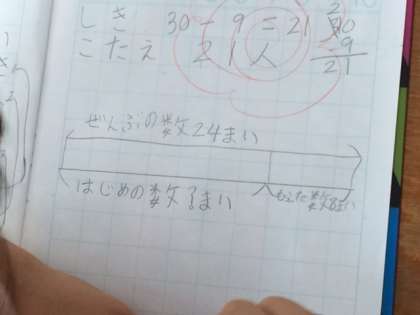 しき 30-9=21
こたえ 21人
30
9
21
ぜんぶの数24まい
はじめの数 まい
もらった数8まい